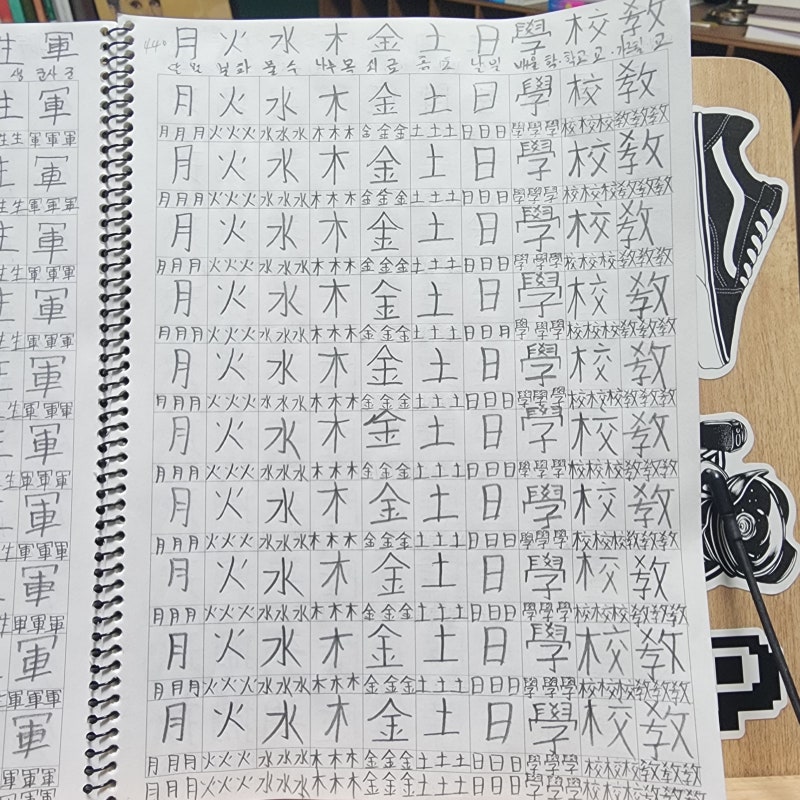 生 軍
생 군사 군
生 軍
生生軍軍軍
軍
生生軍軍軍
生 軍
生生軍軍軍
軍
生生軍軍軍
軍
生軍軍軍
軍
生軍軍軍
軍
生軍軍軍
軍
軍軍軍
軍
軍軍軍
軍
軍軍軍
軍軍軍
440 月 火 水 木 金 土 日 學 校 敎
달 월 불 화 물 수 나무 목 쇠 금 흙 토 날 일 배울 학 학교 교 가르칠 교
月 火 水 木 金 土 日 學 校 敎
月月月 火火火 水水水 木木木 金金金 土土土 日日日 學學學 校校校 敎敎敎
月 火 水 木 金 土 日 學 校 敎
月月月 火火火 水水水 木木木 金金金 土土土 日日日 學學學 校校校 敎敎敎
月 火 水 木 金 土 日 學 校 敎
月月月 火火火 水水水 木木木 金金金 土土土 日日日 學學學 校校校 敎敎敎
月 火 水 木 金 土 日 學 校 敎
月月月 火火火 水水水 木木木 金金金 土土土 日日月 學學學 校校校 敎敎敎
月 火 水 木 金 土 日 學 校 敎
月月月 火火火 水水水 木木木 金金金 土土土 日日日 學學學 校校校 敎敎敎
月 火 水 木 金 土 日 學 校 敎
月月月 火火火 水水水 木木木 金金金 土土土 日日日 學學學 校校校 敎敎敎
月 火 水 木 金 土 日 學 校 敎
月月月 火火火 水水水 木木木 金金金 土土土 日日日 學學學 校校校 敎敎敎
月 火 水 木 金 土 日 學 校 敎
月月月 火火火 水水水 木木木 金金金 土土土 日日日 學學學 校校校 敎敎敎
月 火 水 木 金 土 日 學 校 敎
月月月 火火火 水水水 木木木 金金金 土土土 日日日 學學學 校校校 敎敎敎
月 火 水 木 金 土 日 學 校 敎
月月月 火火火 水水水 木木木 金金金 土土土 日日日 學學學 校校校 敎敎敎
月月月 火火火 水水水 木木木 金金金 土土土 日日日 學學學 校校校 敎敎敎